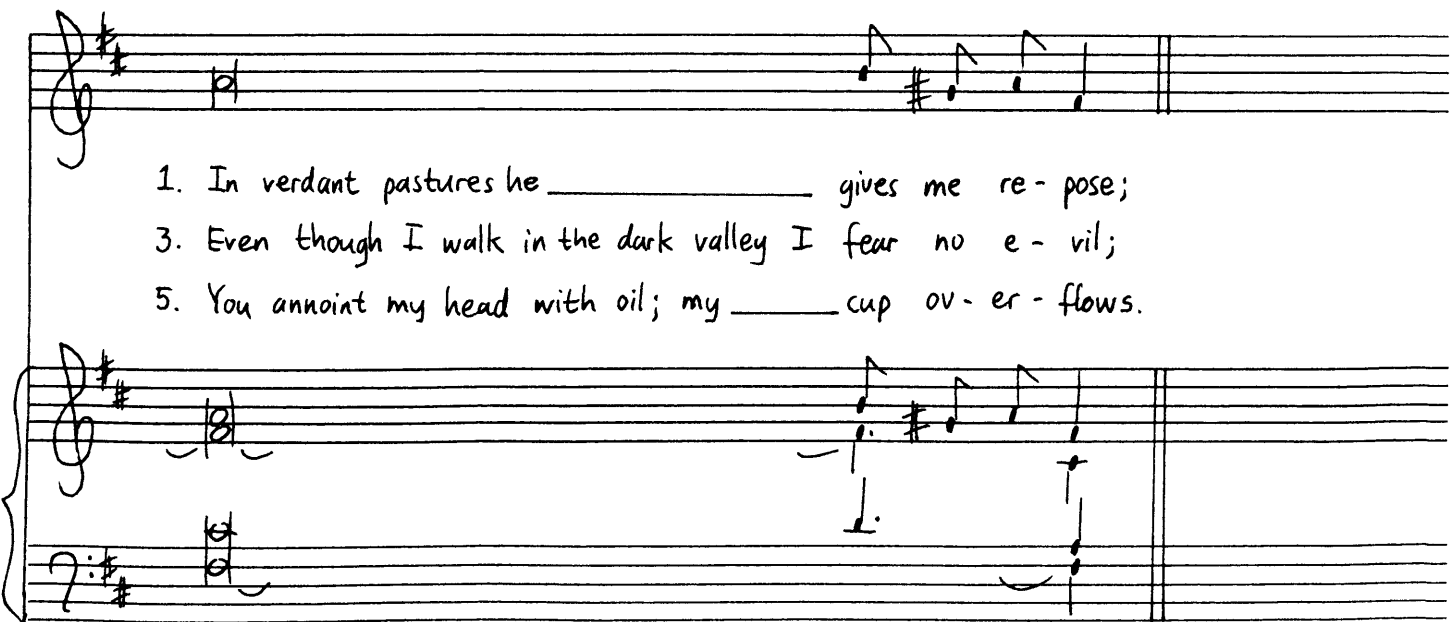 1. In verdant pastures he ____________ gives me re - pose;
3. Even though I walk in the dark valley I fear no e - vil;
5. You annoint my head with oil; my _____ cup ov - er - flows.